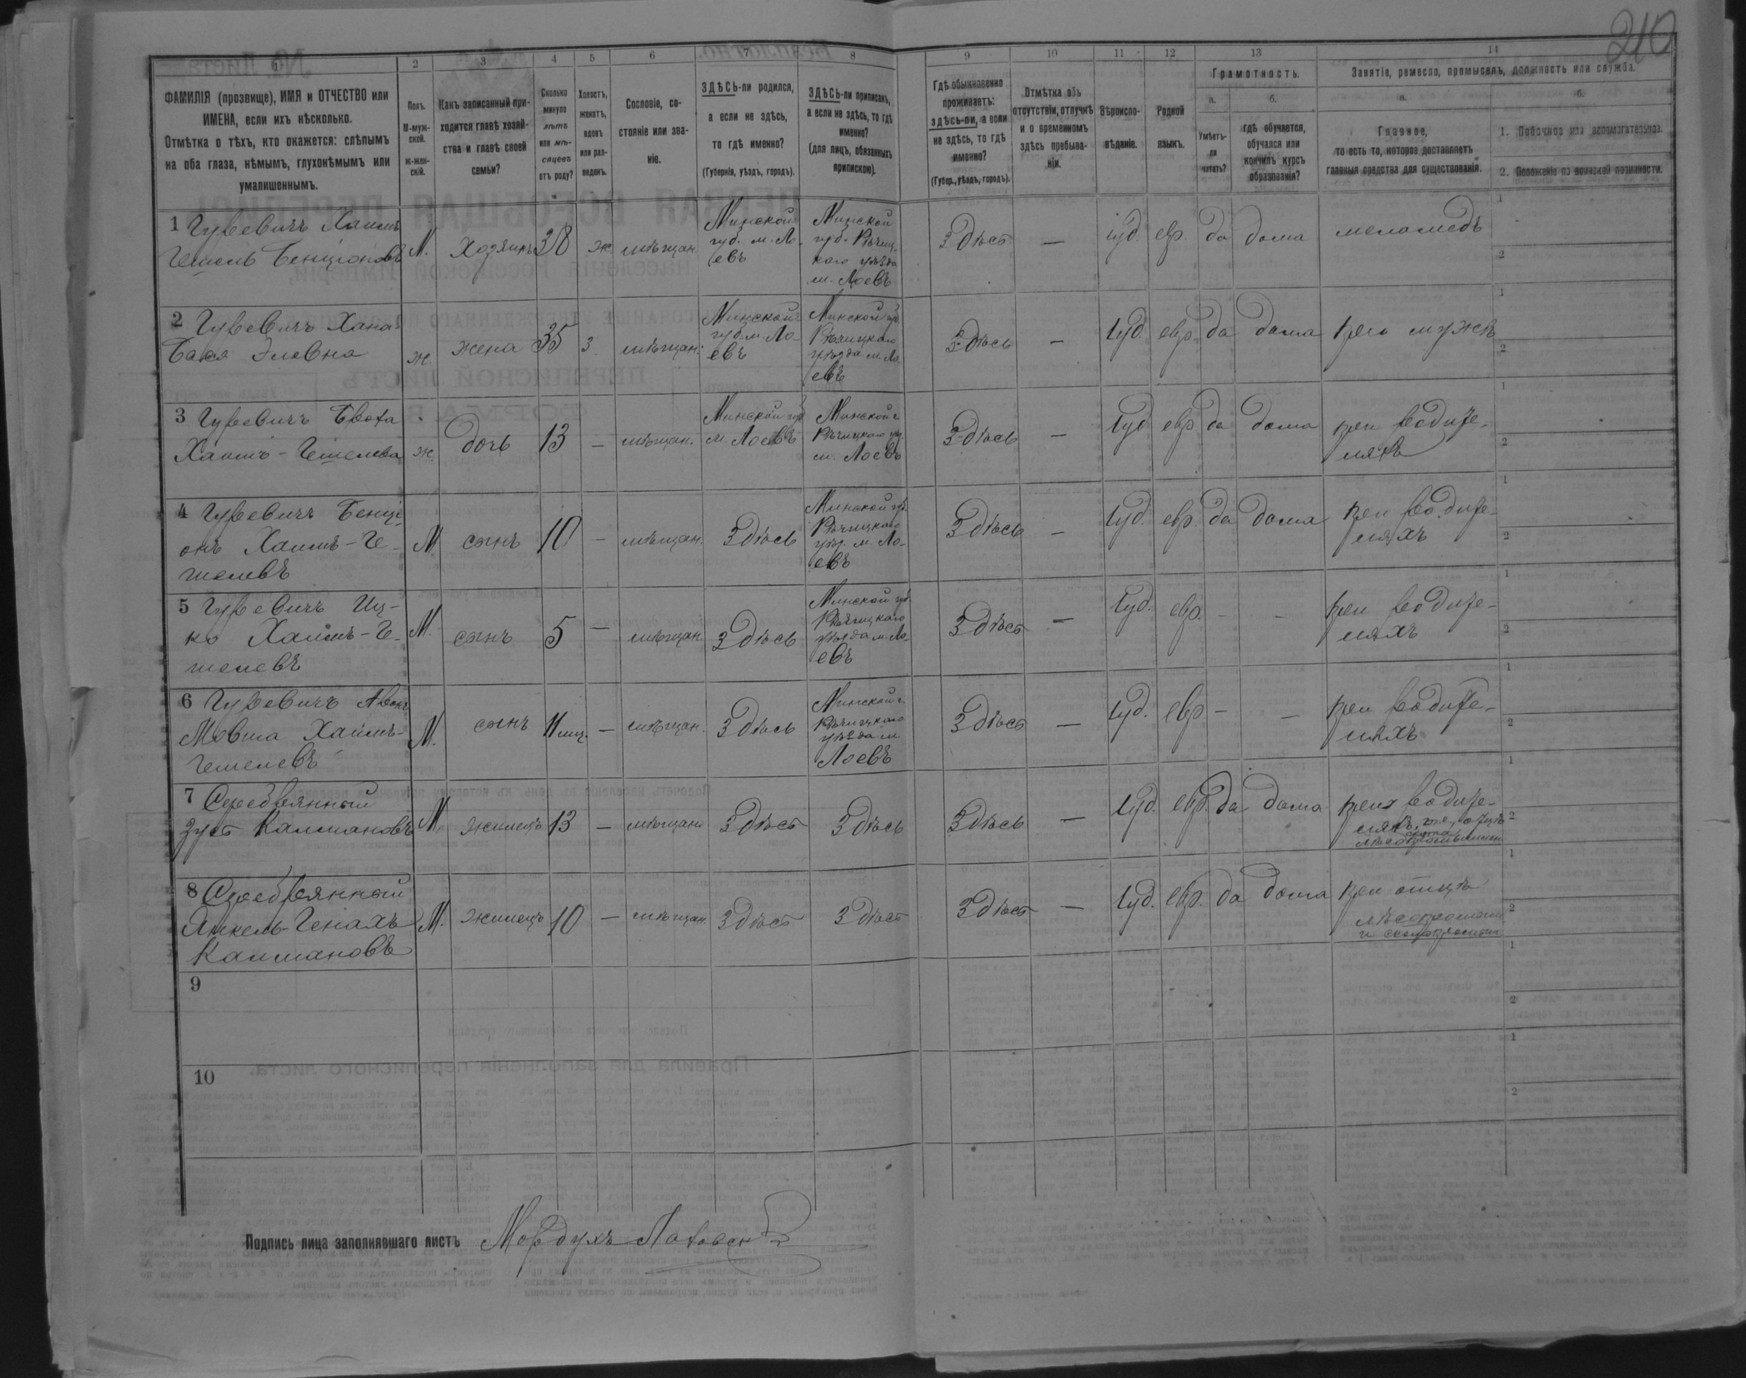 210
1 2 3 4 5 6 7 8 9 10 11 12 13 14
ФАМИЛІЯ (прозвище), ИМЯ и ОТЧЕСТВО или
ИМЕНА, если ихъ нѣсколько.
Отмѣтка о тѣхъ, кто окажется: слѣпымъ
на оба глаза, нѣмымъ, глухонѣмымъ или
умалишеннымъ.
Полъ.
М-муж-
ской.
Ж-жен-
скій.
Какъ записанный при-
ходится главѣ хозяй-
ства и главѣ своей
семьи?
Сколько
минуло
лѣтъ
или мѣ-
сяцевъ
отъ роду?
Холостъ,
женатъ,
вдовъ
или раз-
веденъ.
Сословіе, со-
стояніе или зва-
ніе.
ЗДѢСЬ-ли родился,
а если не здѣсь,
то гдѣ именно?
(Губернія, уѣздъ, городъ).
ЗДѢСЬ-ли приписанъ,
а если не здѣсь, то гдѣ
именно?
(для лицъ, обязанныхъ
припискою).
Гдѣ обыкновенно
проживаетъ:
здѣсь-ли, а если
не здѣсь, то гдѣ
именно?
(Губер., уѣздъ, городъ).
Отмѣтка объ
отсутствіи, отлучкѣ
и о временномъ
здѣсь пребыва-
ніи.
Вѣроиспо-
вѣданіе.
Родной
языкъ.
Грамотность.
а.
Умѣетъ-
ли
читать?
б.
гдѣ обучается,
обучался или
кончилъ курсъ
образованія?
Занятіе, ремесло, промыселъ, должность или служба.
а.
Главное,
то есть то, которое доставляетъ
главныя средства для существованія.
б.
1. Побочное или вспомогательное.
2. Положеніе по воинской повинности.
1 Гуревичъ Хаимъ
Гешель Бенціоновъ
М. Хозяинъ 38 ж мѣщан.
Минской
губ. м. Ло-
евъ
Минской
губ. Рѣчиц-
кого уѣзда
м. Лоевъ
Здѣсь — Іуд. евр. да дома меламедъ
2 Гуревичъ Хана
Бася Элевна
ж жена 35 з. мѣщан.
Минской
губ. м. Ло-
евъ
Минской гу.
Рѣчицкого
уѣзда м. Ло-
евъ
Здѣсь — Іуд. евр. да дома при мужѣ
3 Гуревичъ
Хаимъ-Гешелева
ж дочь 13 — мѣщан.
Минской губ
м. Лоевъ
Минской г.
Рѣчицкого у.
м. Лоевъ
Здѣсь — Іуд евр да дома при родите-
ляхъ
4 Гуревичъ Бенці-
онъ Хаимъ-Ге-
шелевъ
М сынъ 10 — мѣщан. Здѣсь
Минской гу.
Рѣчицкого
уѣз. м. Ло-
евъ
Здѣсь — Іуд. евр. да дома при родите-
ляхъ
5 Гуревичъ Иц-
ко Хаимъ-Ге-
шелевъ
М. сынъ 5 — мѣщан. Здѣсь
Минской губ
Рѣчицкого
уѣзда м. Ло-
евъ
Здѣсь — Іуд. евр. — — при родите-
ляхъ
6 Гуревичъ
Мовша Хаимъ-
Гешелевъ
М. сынъ 11 мц. — мѣщан. Здѣсь
Минской г.
Рѣчицкого
уѣзда м
Лоевъ
Здѣсь — Іуд. евр — — при родите-
ляхъ
7 Серебрянный
Зусь Калмановъ
М. жилецъ 13 — мѣщан. Здѣсь Здѣсь Здѣсь — Іуд. евр. да дома при родите-
8 Серебрянный
Янкель-Генахъ
Калмановъ
М. жилецъ 10 — мѣщан. Здѣсь Здѣсь Здѣсь — Іуд. евр. да дома при отцѣ
9
10
Подпись лица заполнявшаго листъ Мордухъ